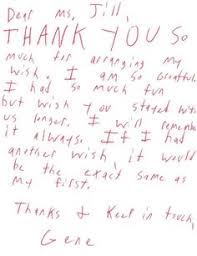 Dear Ms. Jill,
THANK YOU so
much for arranging my
wish. I am so greatful.
I had so much fun
but wish you stayed with
us longer. I will remember
it always. If I had
another wish, it would
be the exact same as
my first.
Thanks & Keep in touch,
Gene